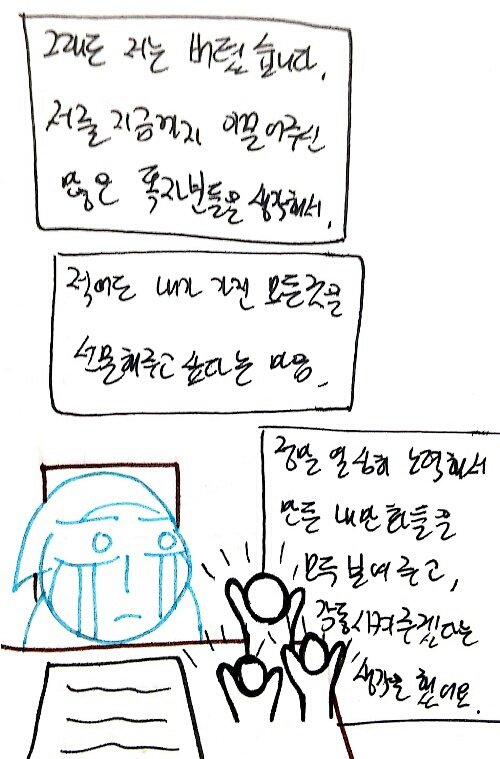 그래도 저는 버텼습니다.
저를 지금까지 이끌어주신
많은 독자분들을 생각해서.
적어도 내가 가진 모든것을
선물해주고 싶다는 마음.
정말 열심히 노력해서
만든 내 만화들을
모두 보여주고,
감동시켜주겠다는
생각을 했어요.